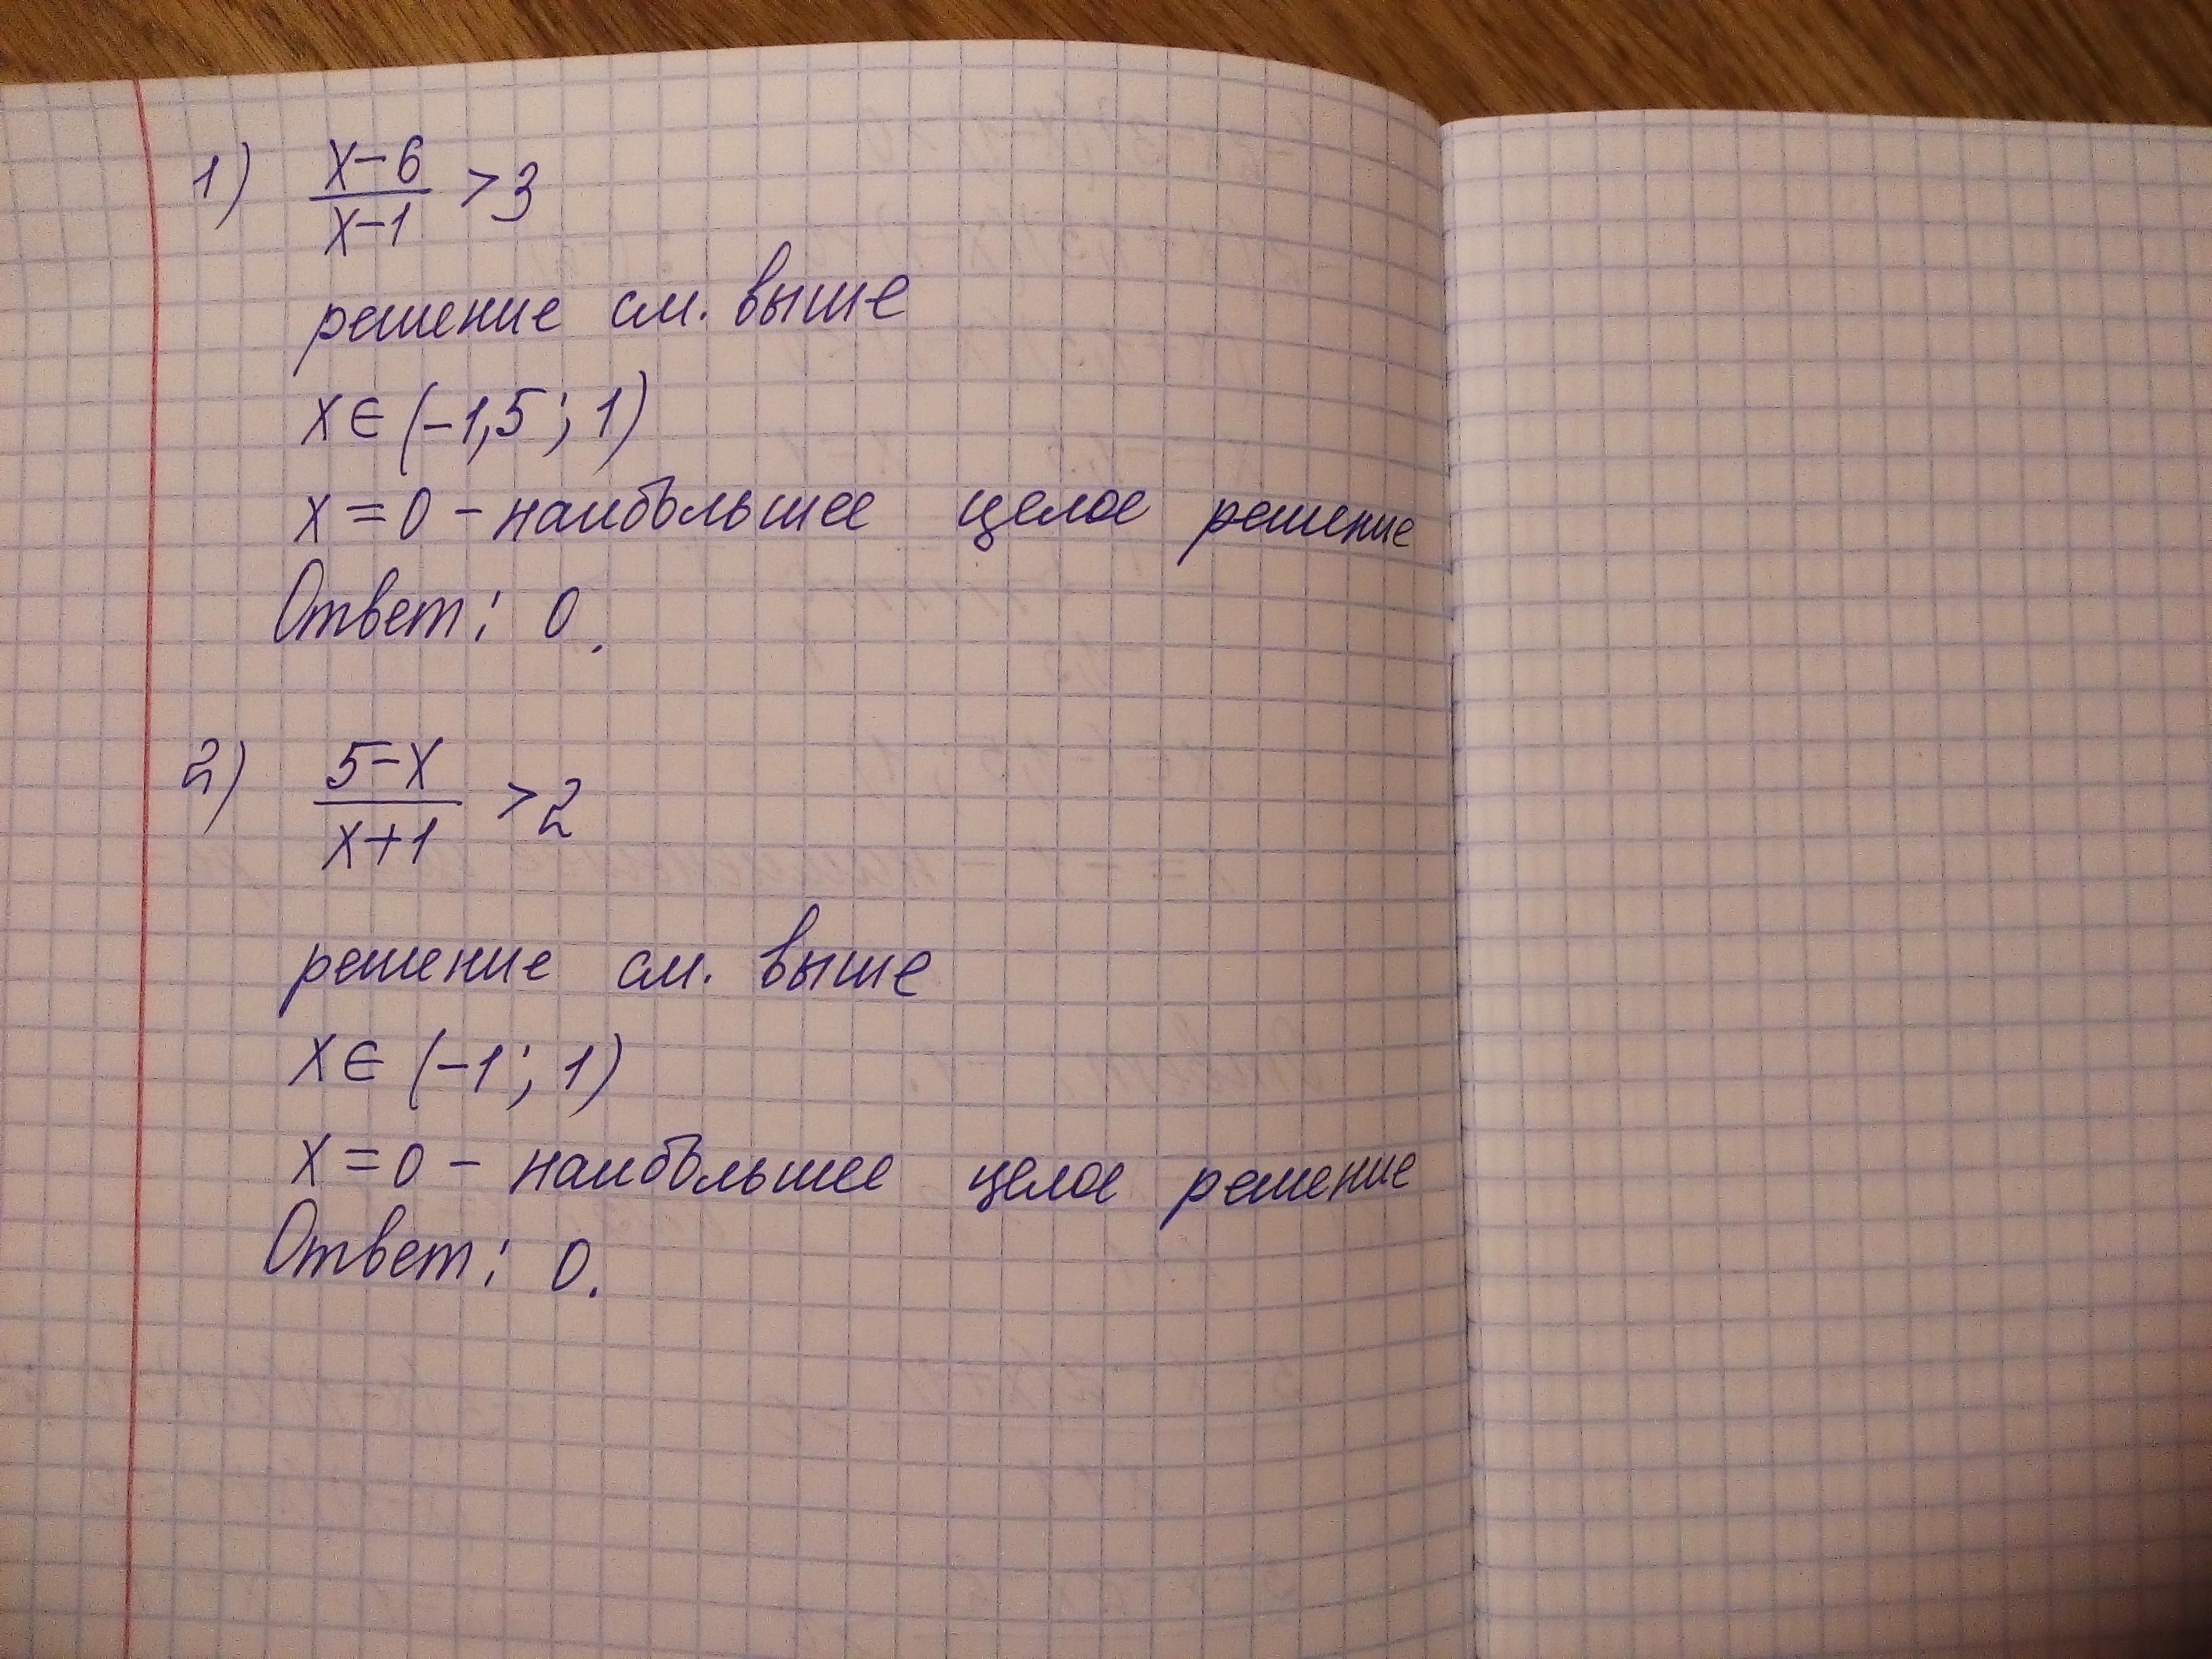 1) x-6
x-1 >3
решение см. выше
x∈(-1,5; 1)
x=0 - наибольшее целое решение
Ответ: 0.
2) 5-x
x+1 >2
решение см. выше
x∈(-1; 1)
x=0 - наибольшее целое решение
Ответ: 0.